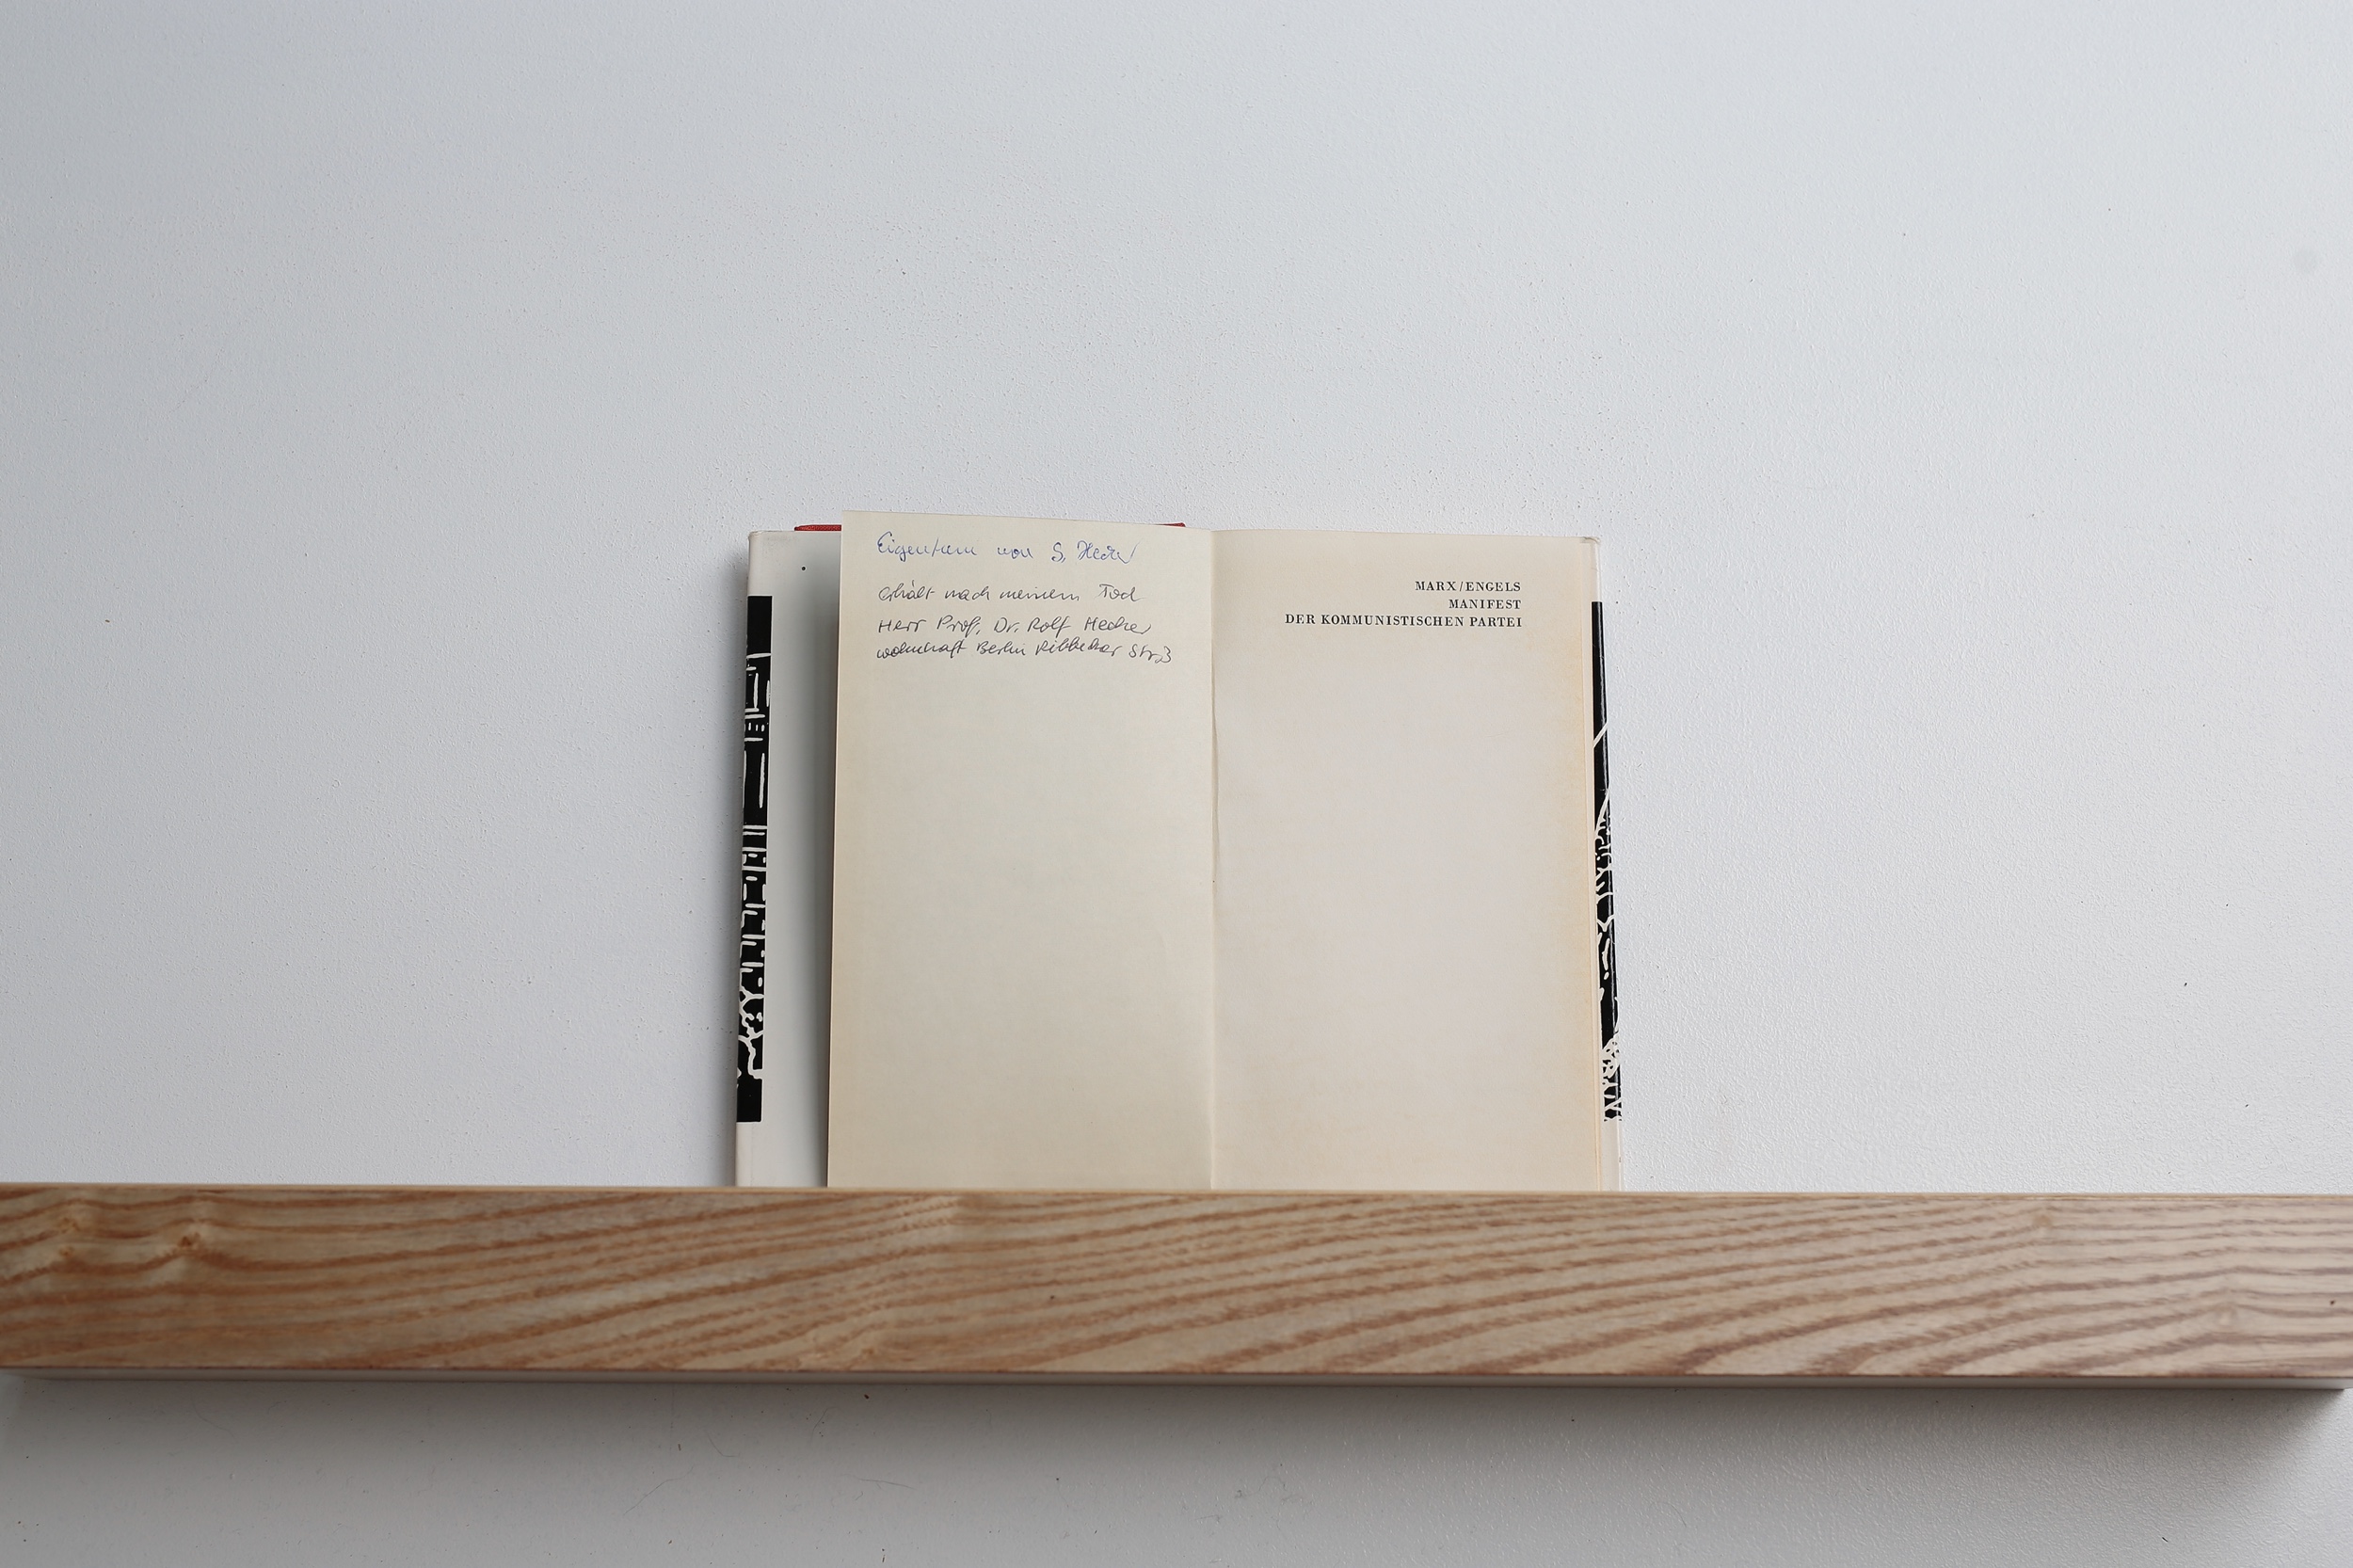 Eigentum von S.
erhält nach meinem Tod
Herr Prof. Dr. Rolf Hecker
wohnhaft Berlin Ribbecker Str 3
MARX/ENGELS
MANIFEST
DER KOMMUNISTISCHEN PARTEI